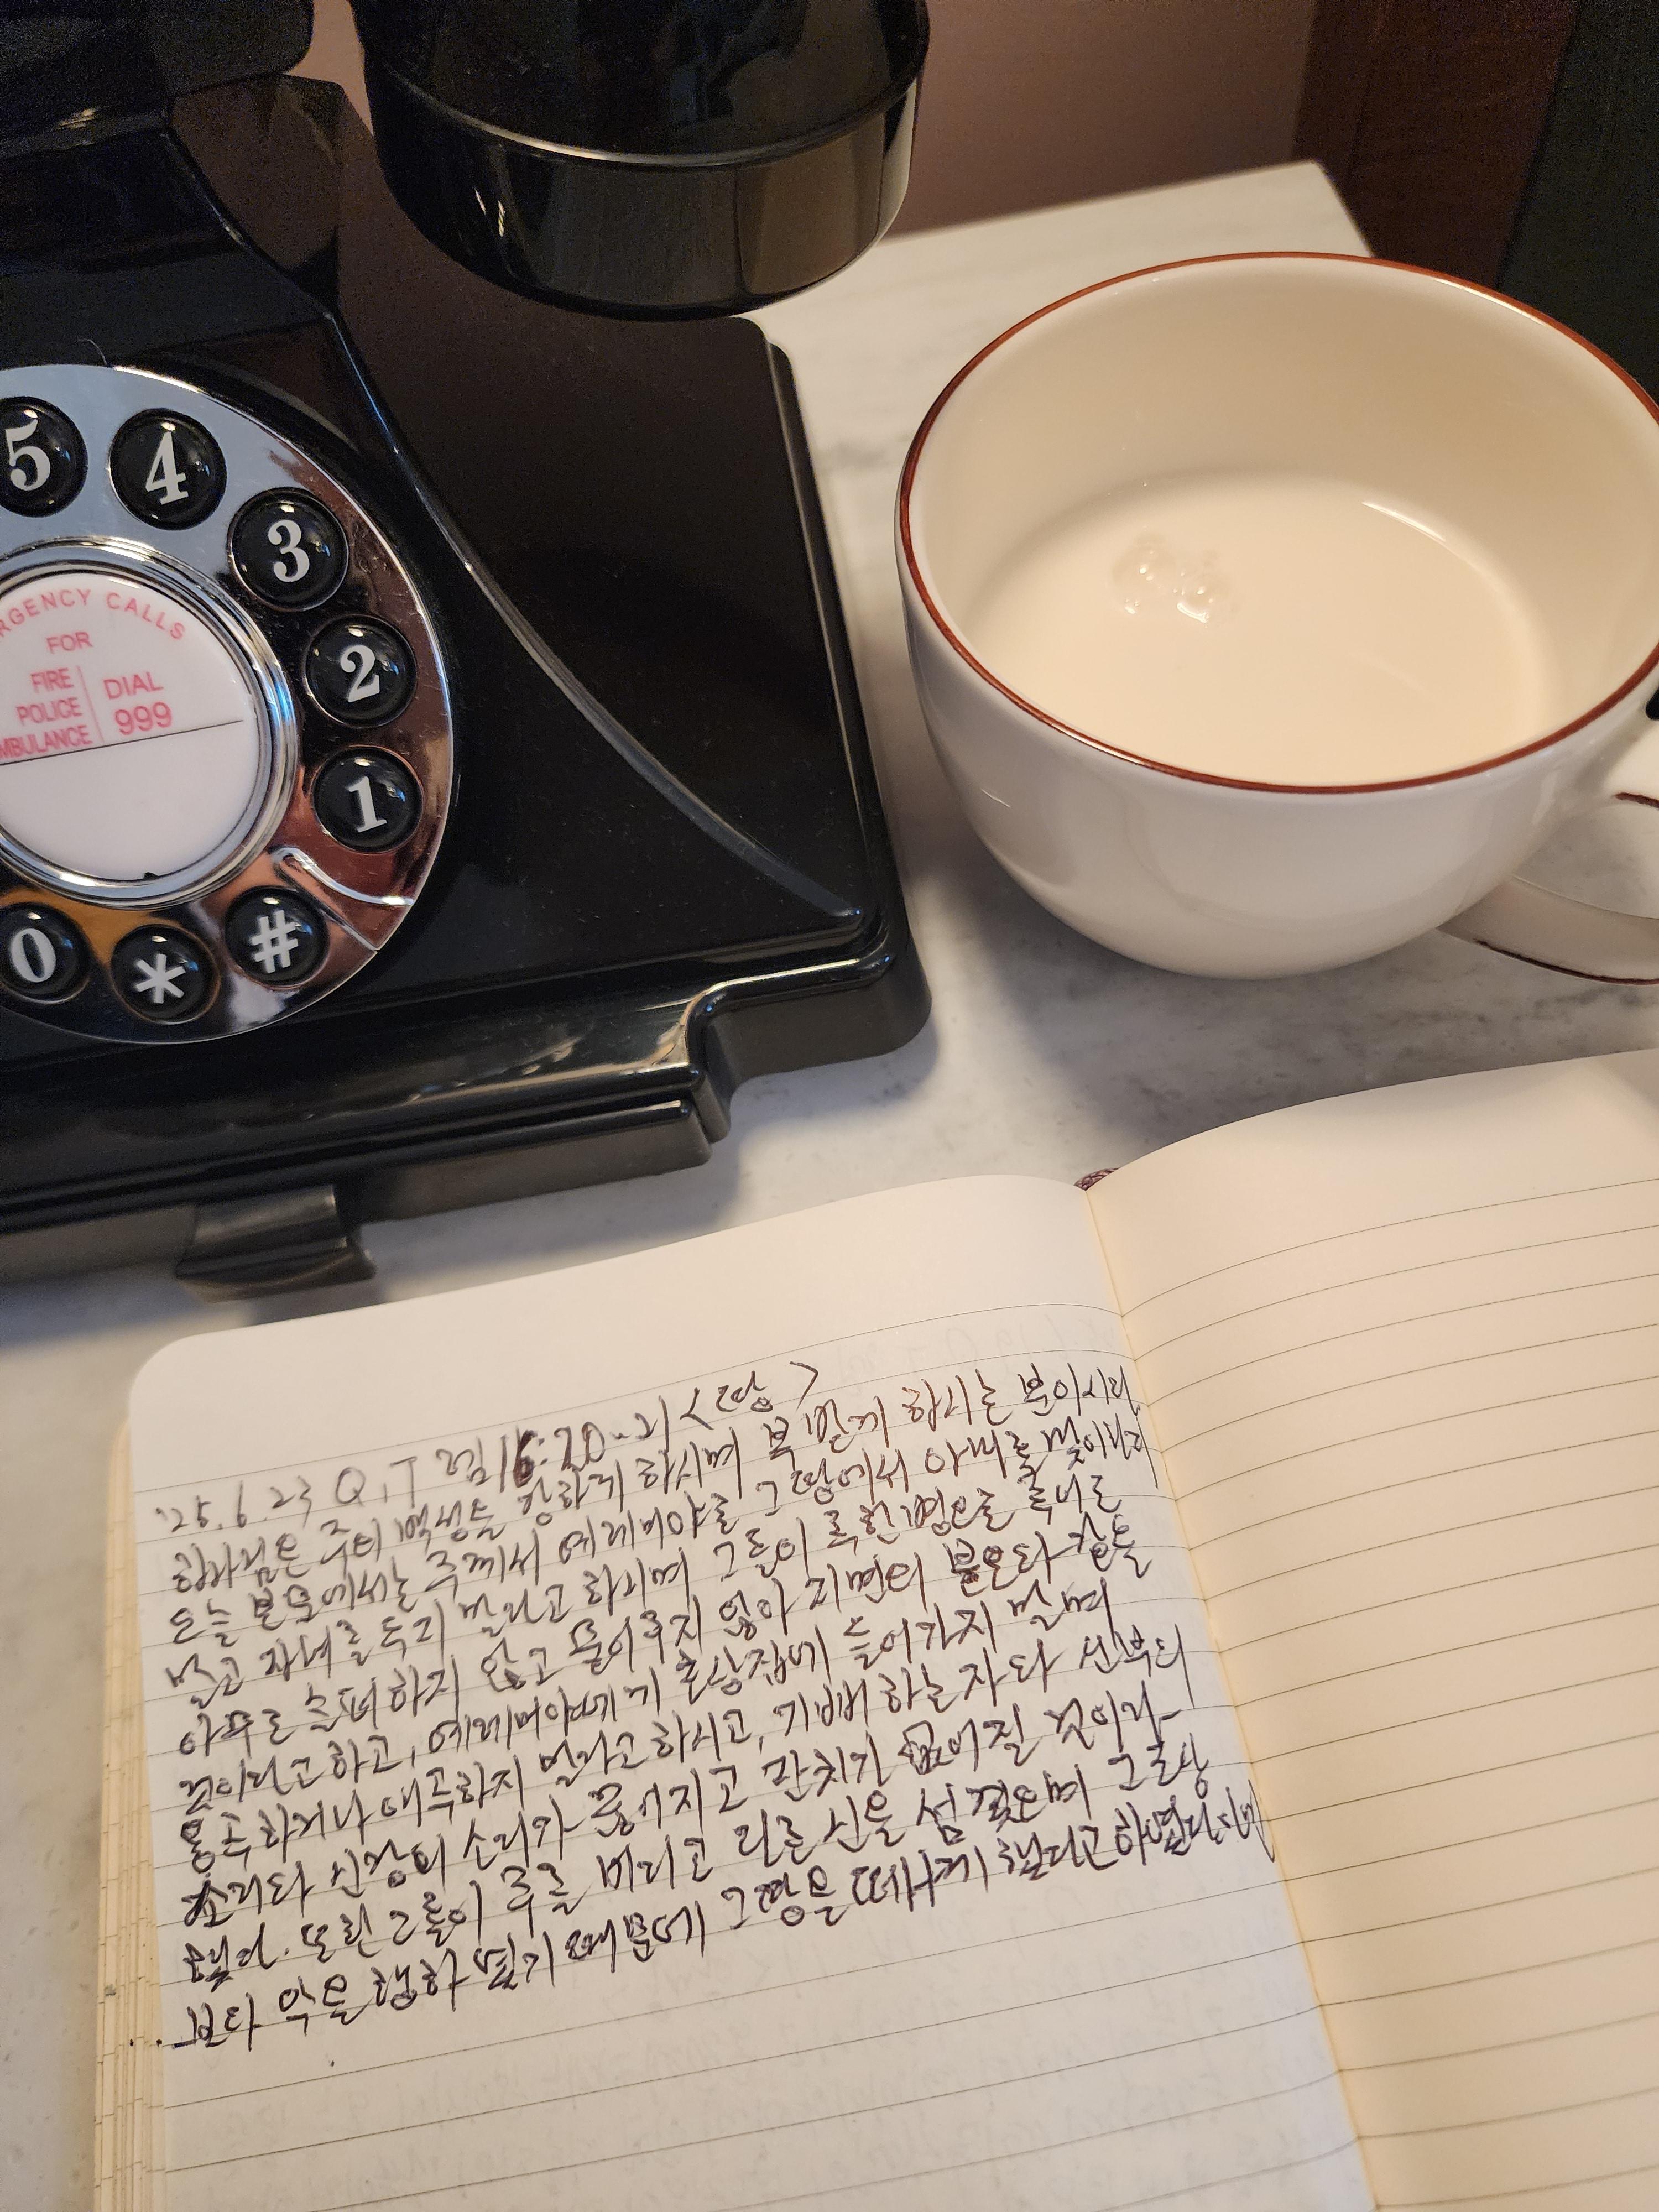 5 4 3 2 1 0 * #
RGENCY CALLS
FOR
FIRE
POLICE
MBULANCE
DIAL
999
'25.6.23 Q.T 렘16:20-21 <땅>
하나님은 주의 백성을 강하게 하시며 복 받게 하시는 분이시다
오늘 본문에서는 주께서 예레미야를 그 땅에서 아내를 맞이하지
말고 자녀를 두지 말라고 하시며 그들이 독한 병으로 죽어도
아무도 슬퍼하지 않고 묻어주지 않아 지면의 분토와 같을
것이라고 하고, 예레미야에게 초상집에 들어가지 말며
통곡하거나 애곡하지 말라고 하시고, 기뻐하는 자와 신부의
소리와 신랑의 소리가 끊어지고 잔치가 없어질 것이라
했다. 또한 그들이 주를 버리고 다른 신을 섬겼으며 그 조상
보다 악을 행하였기 때문에 그 땅을 떠나게 했다고 하였다.